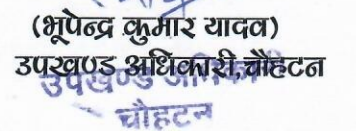 (भूपेन्द्र कुमार यादव)
उपखण्ड अधिकारी,चौहटन
उपखण्ड अधिकारी
चौहटन